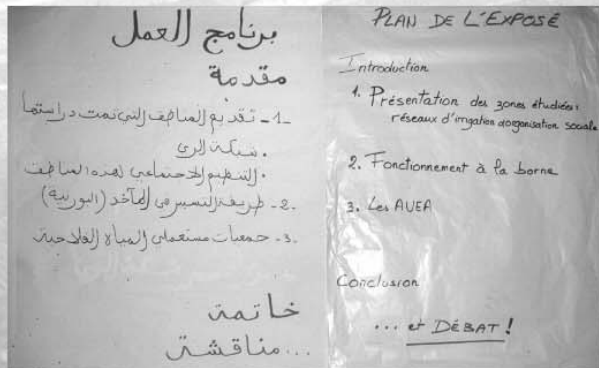 برنامج العمل
مقدمة
-1- تقديم المناطق التي تمت دراستها
. شبكة الري
. التنظيم الاجتماعي لهذه المناطق
-2- طريقة التسيير في المآخذ (البورنية)
-3- جمعيات مستعملي المياه الفلاحية
خاتمة
... مناقشة
PLAN DE L'EXPOSÉ
Introduction
1. Présentation des zones étudiées :
réseaux d'irrigation organisation sociale
2. Fonctionnement à la borne
3. Les AUEA
Conclusion
... et DÉBAT !